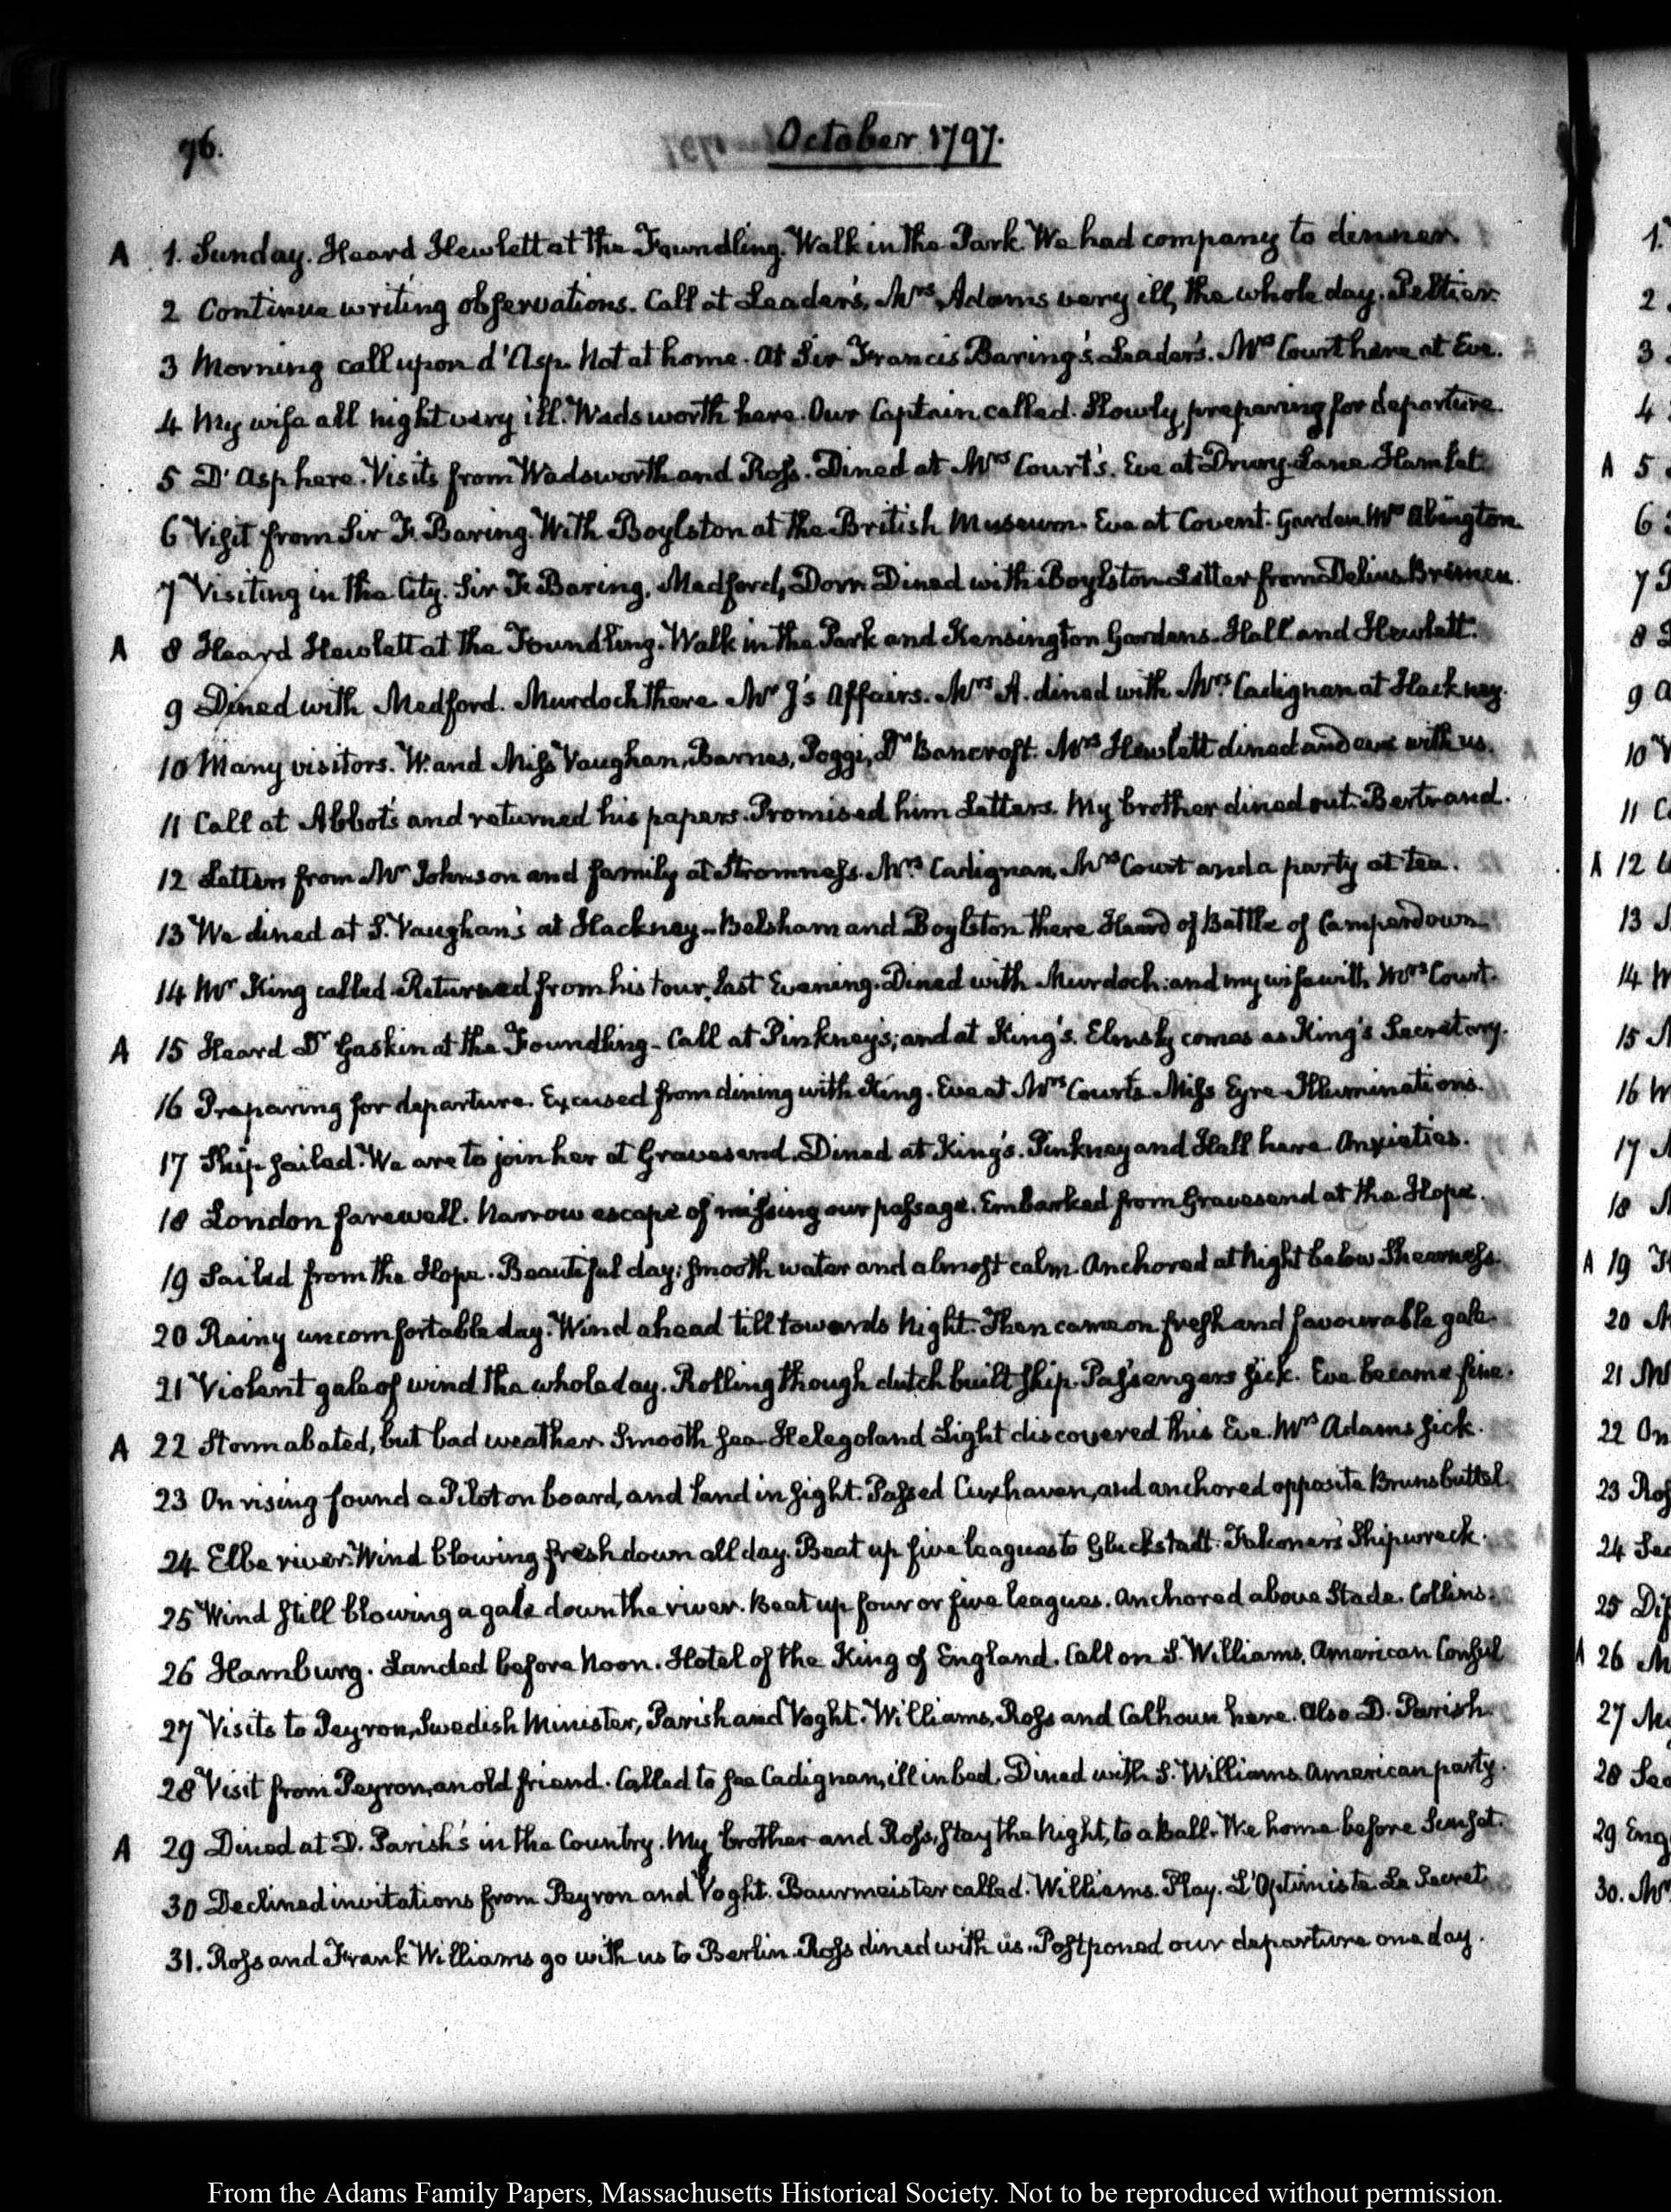 96.
October 1797.
A 1. Sunday. Heard Hewlett at the Foundling. Walk in the Park. We had company to dinner.
2 Continue writing observations. Call at Leader's, Mrs Adams very ill, the whole day. Peltier.
3 Morning call upon d'Asp. Not at home. At Sir Francis Baring's Leader's. Mrs Court here at Eve.
4 My wife all night very ill. Wadsworth here. Our Captain called. Slowly preparing for departure.
5 D'Asp here. Visits from Wadsworth and Ross. Dined at Mrs Court's. Eve at Drury-Lane Hamlet.
6 Visit from Sir F. Baring. With Boylston at the British Museum. Eve at Covent-Garden Mrs Abington.
7 Visiting in the City. Sir F. Baring, Medford, Dorr. Dined with Boylston Letter from Delius Bremen.
A 8 Heard Hewlett at the Foundling. Walk in the Park and Kensington Gardens. Hall and Hewlett.
9 Dined with Medford. Murdoch there. Mr J's Affairs. Mrs A. dined with Mrs Cadignan at Hackney.
10 Many visitors. W. and Miss Vaughan, Barnes, Poggi, Dr Bancroft. Mrs Hewlett dined and eve with us.
11 Call at Abbot's and returned his papers. Promised him Letters. My brother dined out. Bertrand.
12 Letters from Mr Johnson and family at Stromness. Mrs Cadignan, Mrs Court and a party at tea.
13 We dined at S. Vaughan's at Hackney—Belsham and Boylston there Heard of Battle of Camperdown.
14 Mr King called. Returned from his tour, last Evening. Dined with Murdoch: and my wife with Mrs Court.
A 15 Heard Dr Gaskin at the Foundling—Call at Pinkney's; and at King's. Elmsly comes as King's Secretary.
16 Preparing for departure. Excused from dining with King. Eve at Mrs Court's. Miss Eyre—Illuminations.
17 Ship sailed. We are to join her at Gravesend. Dined at King's. Pinkney and Hall here. Anxieties.
18 London farewell. Narrow escape of missing our passage. Embarked from Gravesend at the Hope.
19 Sailed from the Hope. Beautiful day; smooth water and almost calm. Anchored at Night below Sheerness.
20 Rainy uncomfortable day. Wind ahead till towards Night. Then came on fresh and favourable gale.
21 Violent gale of wind the whole day. Rolling though dutch built ship. Passengers sick. Eve became fine.
A 22 Storm abated, but bad weather. Smooth sea—Helegoland Light discovered this Eve. Mrs Adams sick.
23 On rising found a Pilot on board, and land in sight. Passed Cuxhaven, and anchored opposite Brunsbuttel.
24 Elbe river. Wind blowing fresh down all day. Beat up five leagues to Gluckstadt. Falconer's Shipwreck.
25 Wind still blowing a gale down the river. Beat up four or five leagues. Anchored above Stade. Collins.
26 Hamburg. Landed before Noon. Hotel of the King of England. Call on S. Williams, American Consul
27 Visits to Peyron, Swedish Minister, Parish and Voght. Williams, Ross and Calhoun here. Also D. Parish.
28 Visit from Peyron, an old friend. Called to see Cadignan, ill in bed. Dined with S. Williams. American party.
A 29 Dined at D. Parish's in the Country. My brother and Ross, stay the Night, to a Ball. We home before Sunset.
30 Declined invitations from Peyron and Voght. Baurmeister called. Williams. Play. L'Optimiste Le Secret
31. Ross and Frank Williams go with us to Berlin. Ross dined with us. Postponed our departure one day.
From the Adams Family Papers, Massachusetts Historical Society. Not to be reproduced without permission.